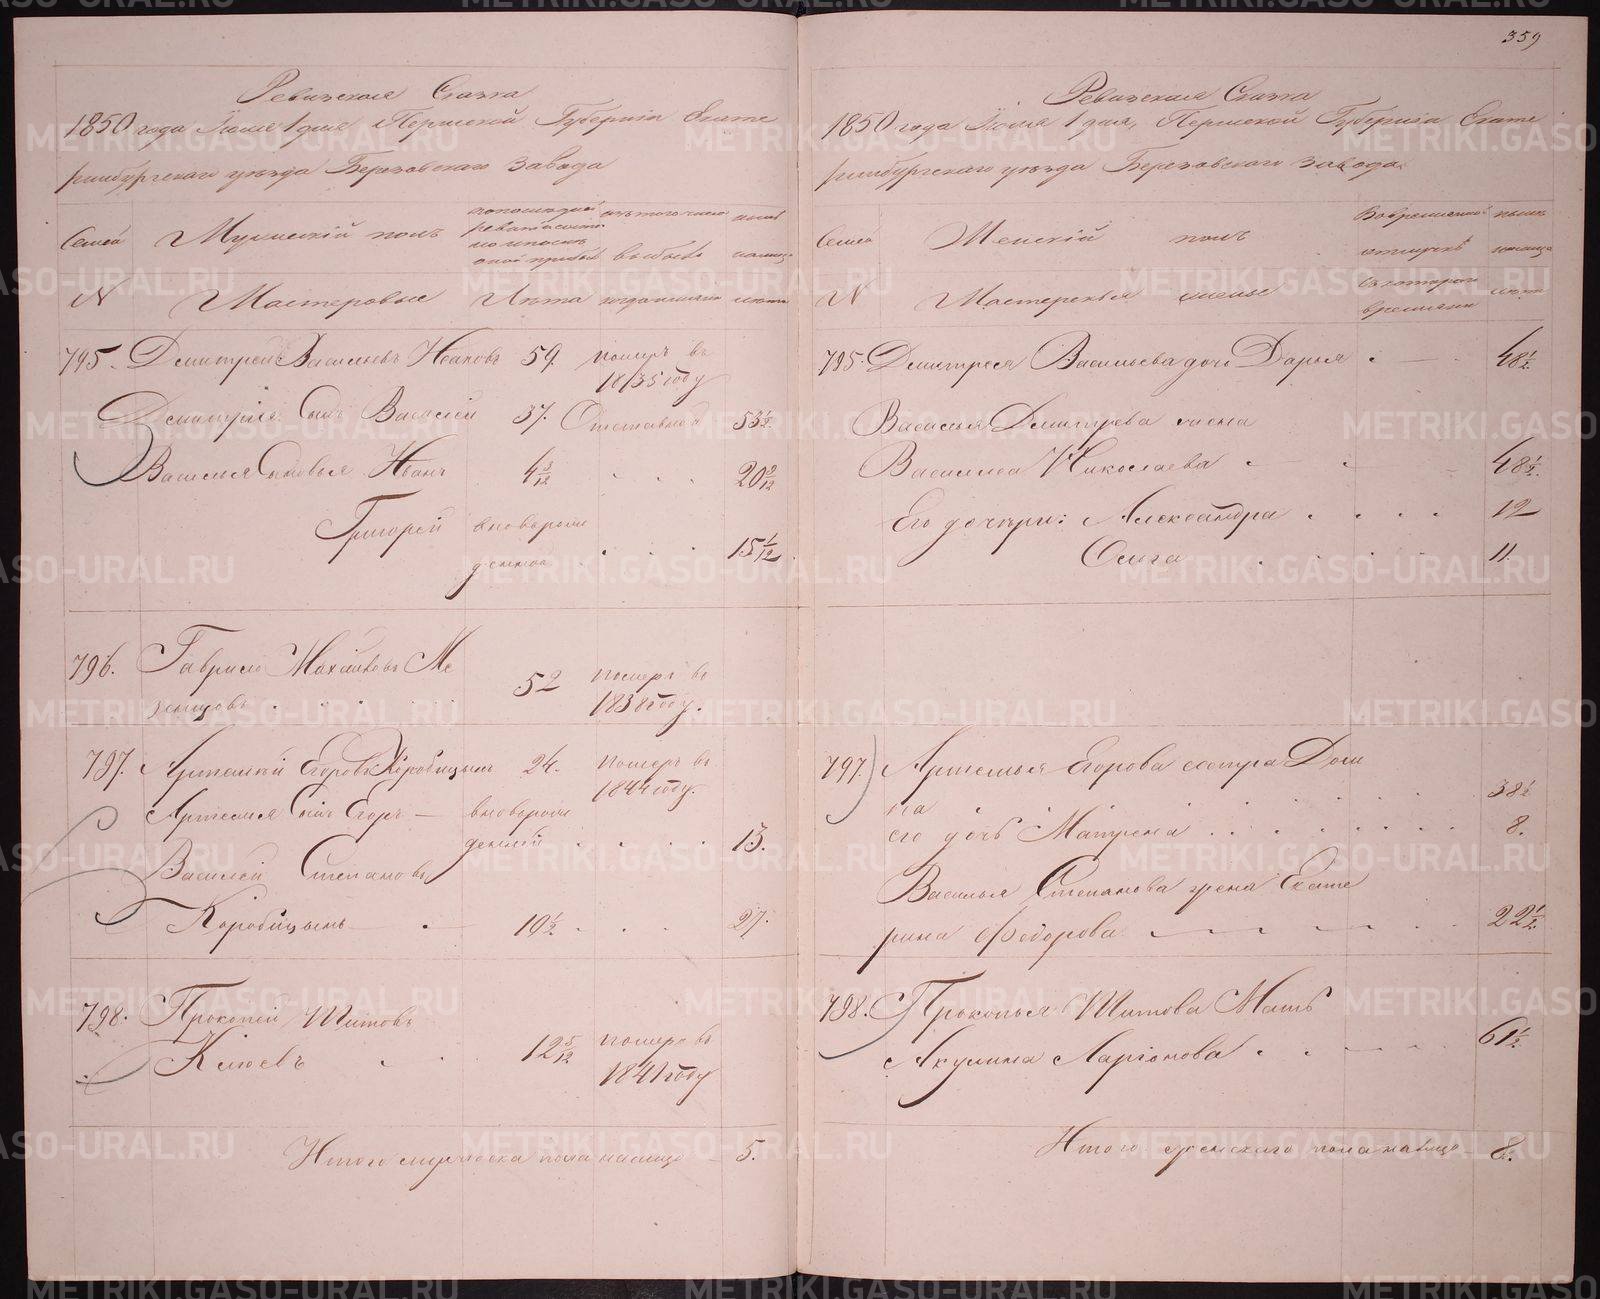 359
Ревизская Сказка
1850 года Іюля 1 дня Пермской Губерніи Екате
ринбургскаго уѣзда Березовскаго Завода
Семей Мужескій полъ изъ того числа выбыло нынѣ на лицо
N Мастеровые Лѣта когда именно лѣта
795. Дмитрей Васильевъ Ивановъ 59. померъ въ
1835 году
Дмитрия Сынъ Василей 37. Отставной 53 1/2
Василья Сыновья Иванъ 4 3/12 20 2/12
Григорей вноворож
денной 15 1/12
796. Гаврило Михайловъ Ме
52 померъ въ
1838 году.
797. Артемий Егоровъ Коробицынъ 24. померъ въ
1844 году.
Артемия Сынъ Егоръ — вноворож
денной 13.
Василей Степановъ
Коробицынъ 10 1/2 27.
798. Прокопей Титовъ
Клюевъ 12 5/12 померъ въ
1841 году
Итого мужеска пола налицо — 5.
Ревизская Сказка
1850 года Іюля 1 дня, Пермской Губерніи Екате
ринбургскаго уѣзда Березовскаго завода.
Семей Женскій полъ Во временной отлучкѣ нынѣ на лицо
N Мастерскія жены съ котораго времени лѣта
795. Дмитрея Васильева дочь Дарья 48 1/2
Василья Дмитрева жена
Василиса Николаева 48 1/2
Его дочери: Александра 12
Ольга 11.
797. Артемья Егорова сестра Дом
на 38 1/2
его дочь Матрена 8.
Василья Степанова жена Екате
рина Федорова 22 1/2
798. Прокопья Титова Мать
Акулина Ларіонова 61 1/2
Итого женскаго пола налицо 8.